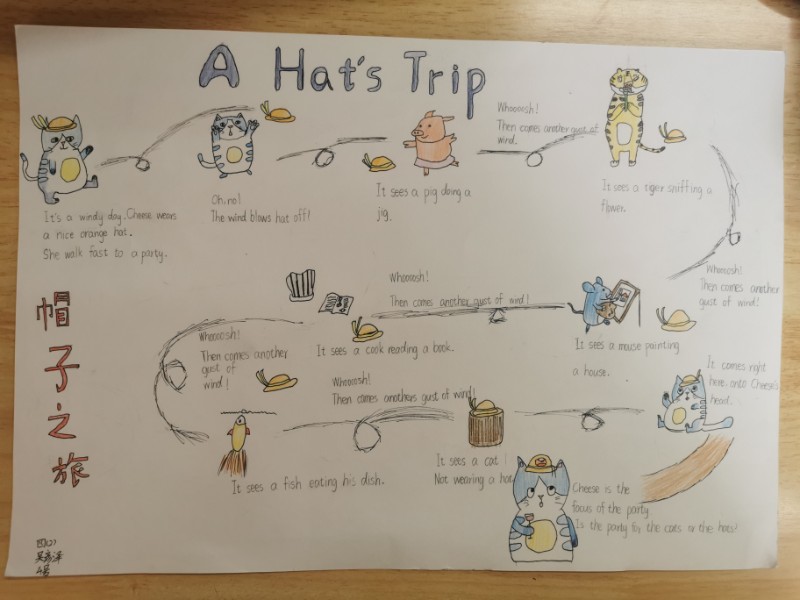 A Hat's Trip
It's a windy day. Cheese wears
a nice orange hat.
She walk fast to a party.
Oh, no!
The wind blows hat off!
It sees a pig doing a
jig.
Whoooosh!
Then comes another gust of
wind.
It sees a tiger sniffing a
flower.
Whooosh!
Then comes another
gust of wind!
It sees a mouse painting
a house.
Whooosh!
Then comes another gust of wind!
It sees a cook reading a book.
Whooosh!
Then comes another
gust of
wind!
It sees a fish eating his dish.
Whooosh!
Then comes anothers gust of wind!
It sees a cat!
Not wearing a hat
It comes right
here onto Cheese's
head.
Cheese is the
focus of the party
Is the party for the cats or the hats?
帽子之旅
四(2)